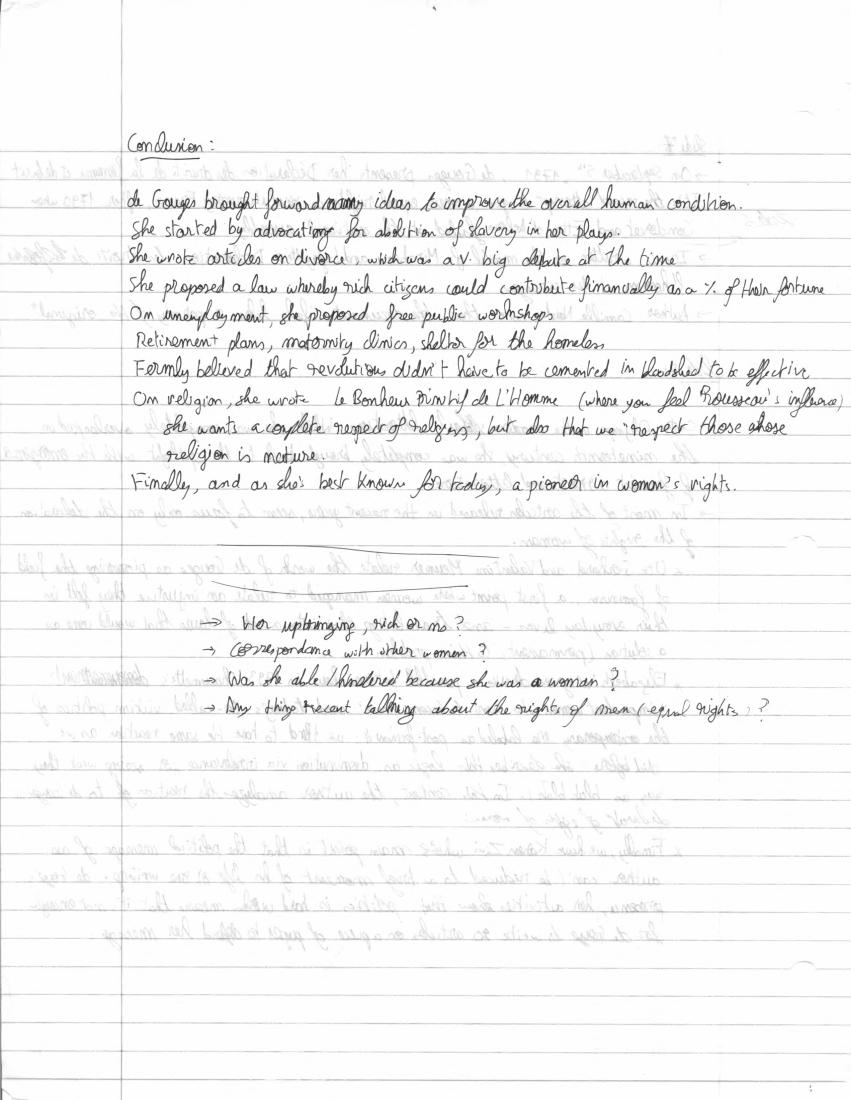 Conclusion :
de Gouges brought forward many ideas to improve the overall human condition.
She started by advocating for abolition of slavery in her plays.
She wrote articles on divorce, which was a v. big debate at the time
She proposed a law whereby rich citizens could contribute financially as a % of their fortune
On unemployment, she proposed free public workshops
Retirement plans, maternity clinics, shelter for the homeless
Fermly believed that revolutions didn't have to be cemented in bloodshed to be effective
On religion, she wrote Le Bonheur Primitif de L'Homme (where you feel Rousseau's influence)
she wants a complete respect of religions, but also that we "respect those whose
religion is nature.
Finally, and as she's best known for today, a pioneer in woman's rights.
→ Her upbringing, rich or no ?
→ Correspondance with other women ?
→ Was she able / hindered because she was a woman ?
→ Any thing recent talking about the rights of men (equal rights) ?